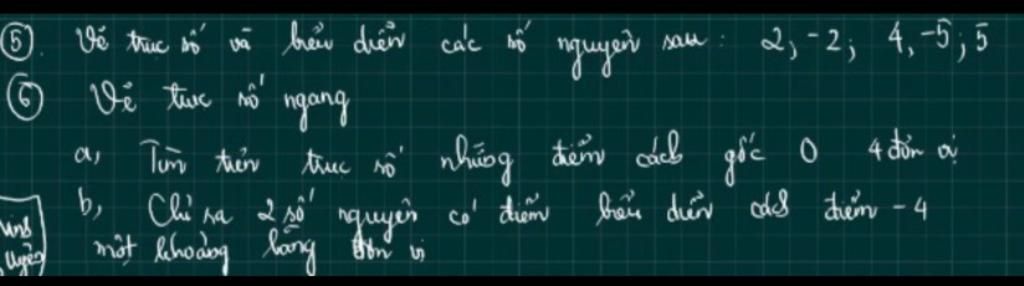 ⑤. Vẽ trục số và biểu diễn các số nguyên sau: 2, -2; 4, -5; 5
⑥ Vẽ trục số ngang
a, Tìm trên trục số những điểm cách gốc 0 4 đơn vị
b, Chỉ ra 2 số nguyên có điểm biểu diễn cách điểm -4
một khoảng bằng đơn vị